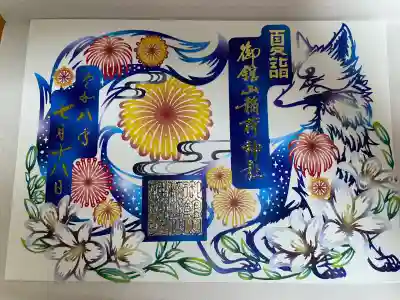 夏詣
御館山稲荷神社
令和八年
七月十八日